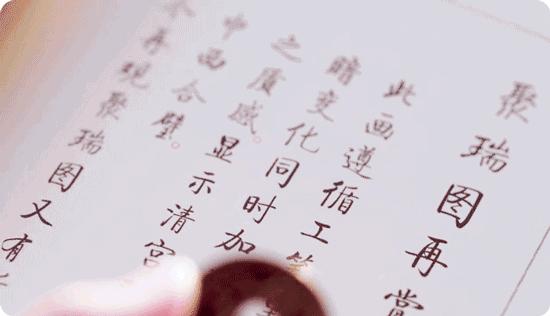 聚瑞图再
此画遵循工
暗变化同时加
之质感。显示清宫
中西合璧。
再现聚瑞图又有